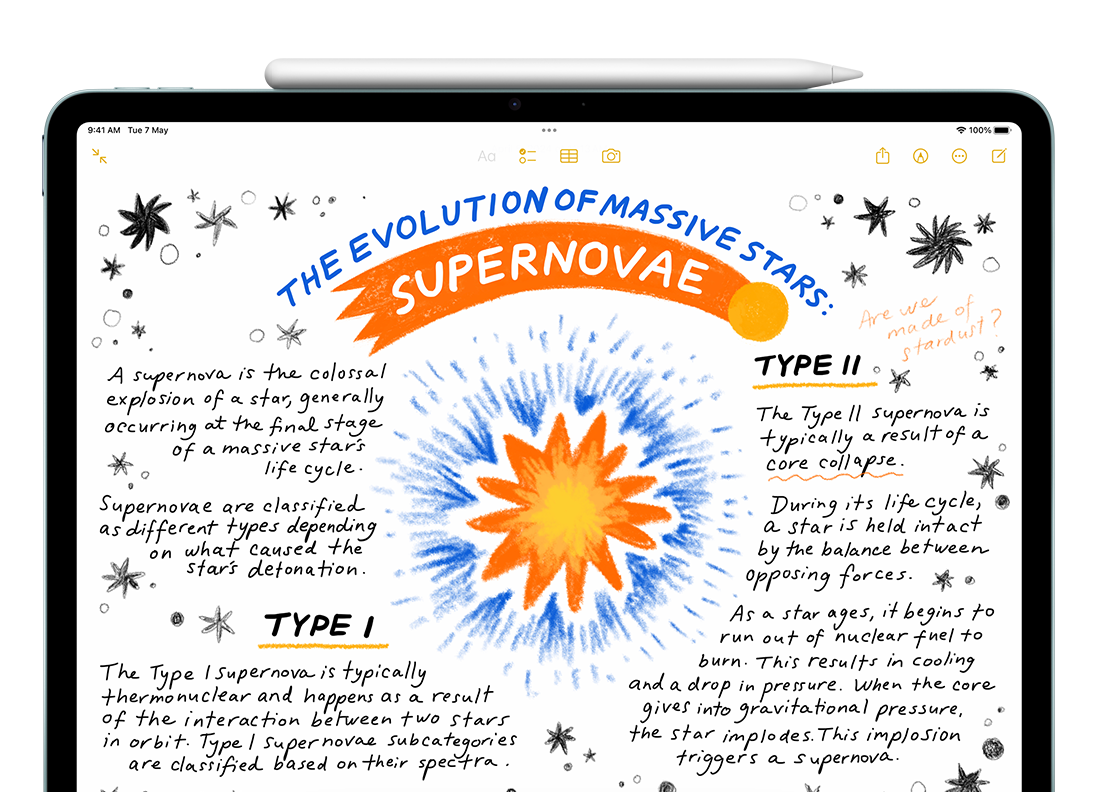 9:41 AM Tue 7 May
100%
Aa
THE EVOLUTION OF MASSIVE STARS:
SUPERNOVAE
Are we
made of
stardust?
A supernova is the colossal
explosion of a star, generally
occurring at the final stage
of a massive star's
life cycle.
Supernovae are classified
as different types depending
on what caused the
star's detonation.
TYPE I
The Type I Supernova is typically
thermonuclear and happens as a result
of the interaction between two stars
in orbit. Type I Supernovae subcategories
are classified based on their spectra.
TYPE II
The Type II supernova is
typically a result of a
core collapse.
During its life cycle,
a star is held intact
by the balance between
opposing forces.
As a star ages, it begins to
run out of nuclear fuel to
burn. This results in cooling
and a drop in pressure. When the core
gives into gravitational pressure,
the star implodes. This implosion
triggers a supernova.